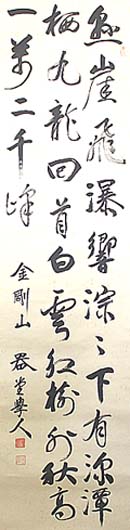 懸崖飛瀑響淙々下有深潭
栖九龍回首白雲紅樹外秋高
一萬二千峰 金剛山 器堂學人